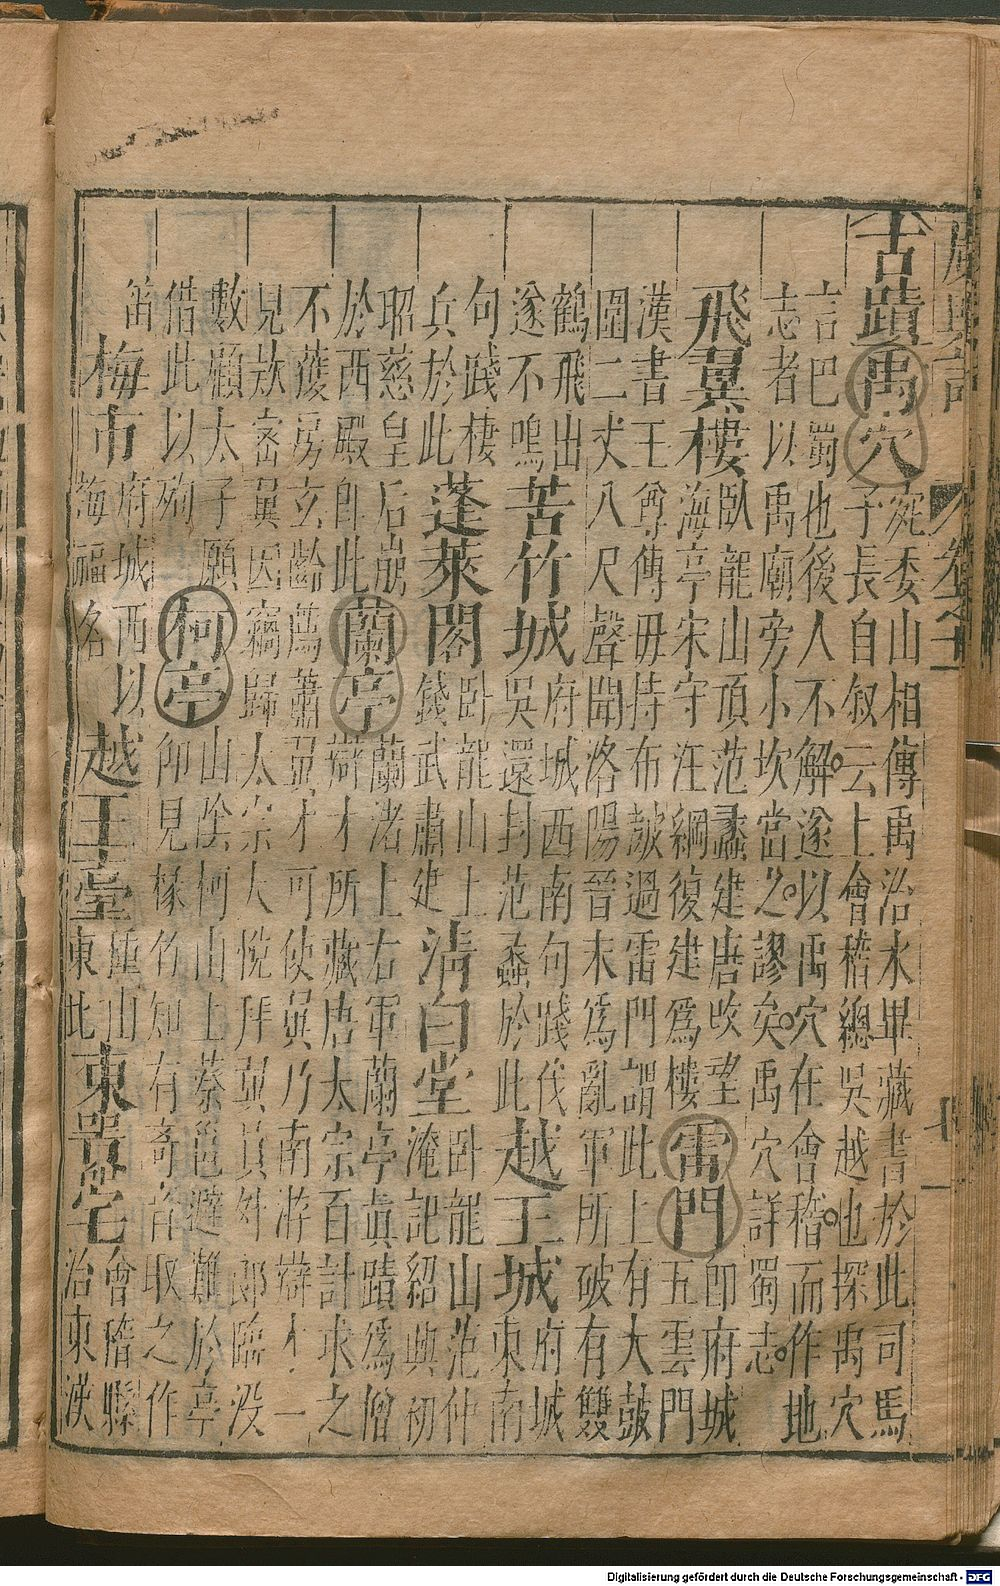 廣輿記 卷之十一 十一
古蹟 禹穴 宛委山相傳禹治水畢藏書於此司馬
子長自叙云上會稽總吳越也探禹穴
言巴蜀也後人不解遂以禹穴在會稽而作地
志者以禹廟旁小坎當之謬矣禹穴詳蜀志
飛翼樓 臥龍山頂范蠡建唐吹望
海亭宋守汪綱復建爲樓 雷門 即府城
五雲門
漢書王尊傳毋持布皷過雷門謂此上有大皷
圍二丈八尺聲聞洛陽晉末爲亂軍所破有雙
鶴飛出
遂不鳴 苦竹城 府城西南句踐伐
吳還封范蠡於此 越王城 府城
東南
句踐棲
兵於此 蓬萊閣 卧龍山上
錢武肅建 清白堂 卧龍山范仲
淹記紹興初
昭慈皇后崩
於西殿即此 蘭亭 蘭渚上右軍蘭亭眞蹟爲僧
辯才所藏唐太宗百計求之
不獲房玄齡薦蕭翼才可使翼乃南游辯才一
見欵密翼因竊歸太宗大悅拜翼員外郎臨没
數顧太子願
借此以殉 柯亭 山陰柯山上蔡邕避難於亭
仰見椽竹知有奇音取之作
笛
梅市 府城西以
梅福名 越王臺 種山
東北 宅 會稽縣
治東漢
Digitalisierung gefördert durch die Deutsche Forschungsgemeinschaft - DFG